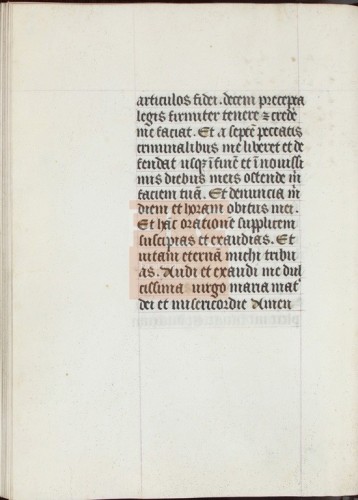 articulos fidei. decem precepta
legis firmiter tenere ⁊ crede
me faciat. Et a septē peccatis
criminalibus me liberet et de
fendat usqȝ ī finē et ī nouissi
mis diebus meis ostende m̄
faciem tuā. Et denuncia m̄
diem et horam obitus mei.
Et hāc orationē supplicem
suscipias et exaudias. Et
uitam eternā michi tribu
as. Audi et exaudi me dul
cissima uirgo maria mat̄
dei et misericordie Amen